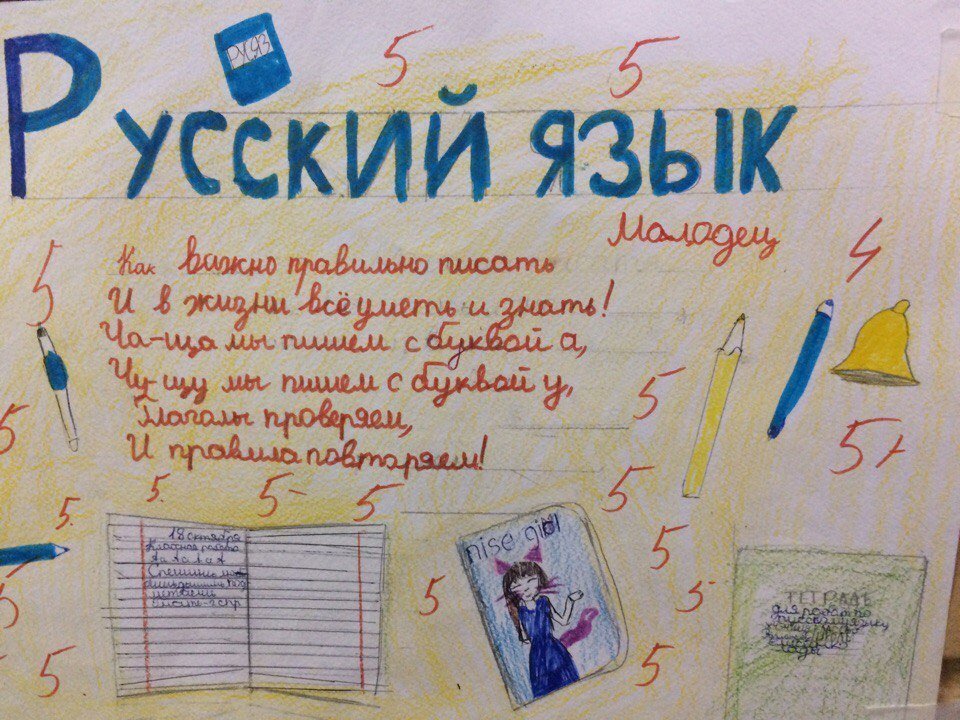 РУСЯЗ
5 5
Русский язык
Молодец
4
5
Как важно правильно писать
И в жизни всё уметь и знать!
Ча-ща мы пишем с буквой а,
Чу-щу мы пишем с буквой у,
Глаголы проверяем,
И правила повторяем!
5
5
5+
5
5. 5. 5- 5
18 октября
nise girl
5
5
5
5
5
5
5
5
ТЕТРАДЬ
для работ по
русскому языку